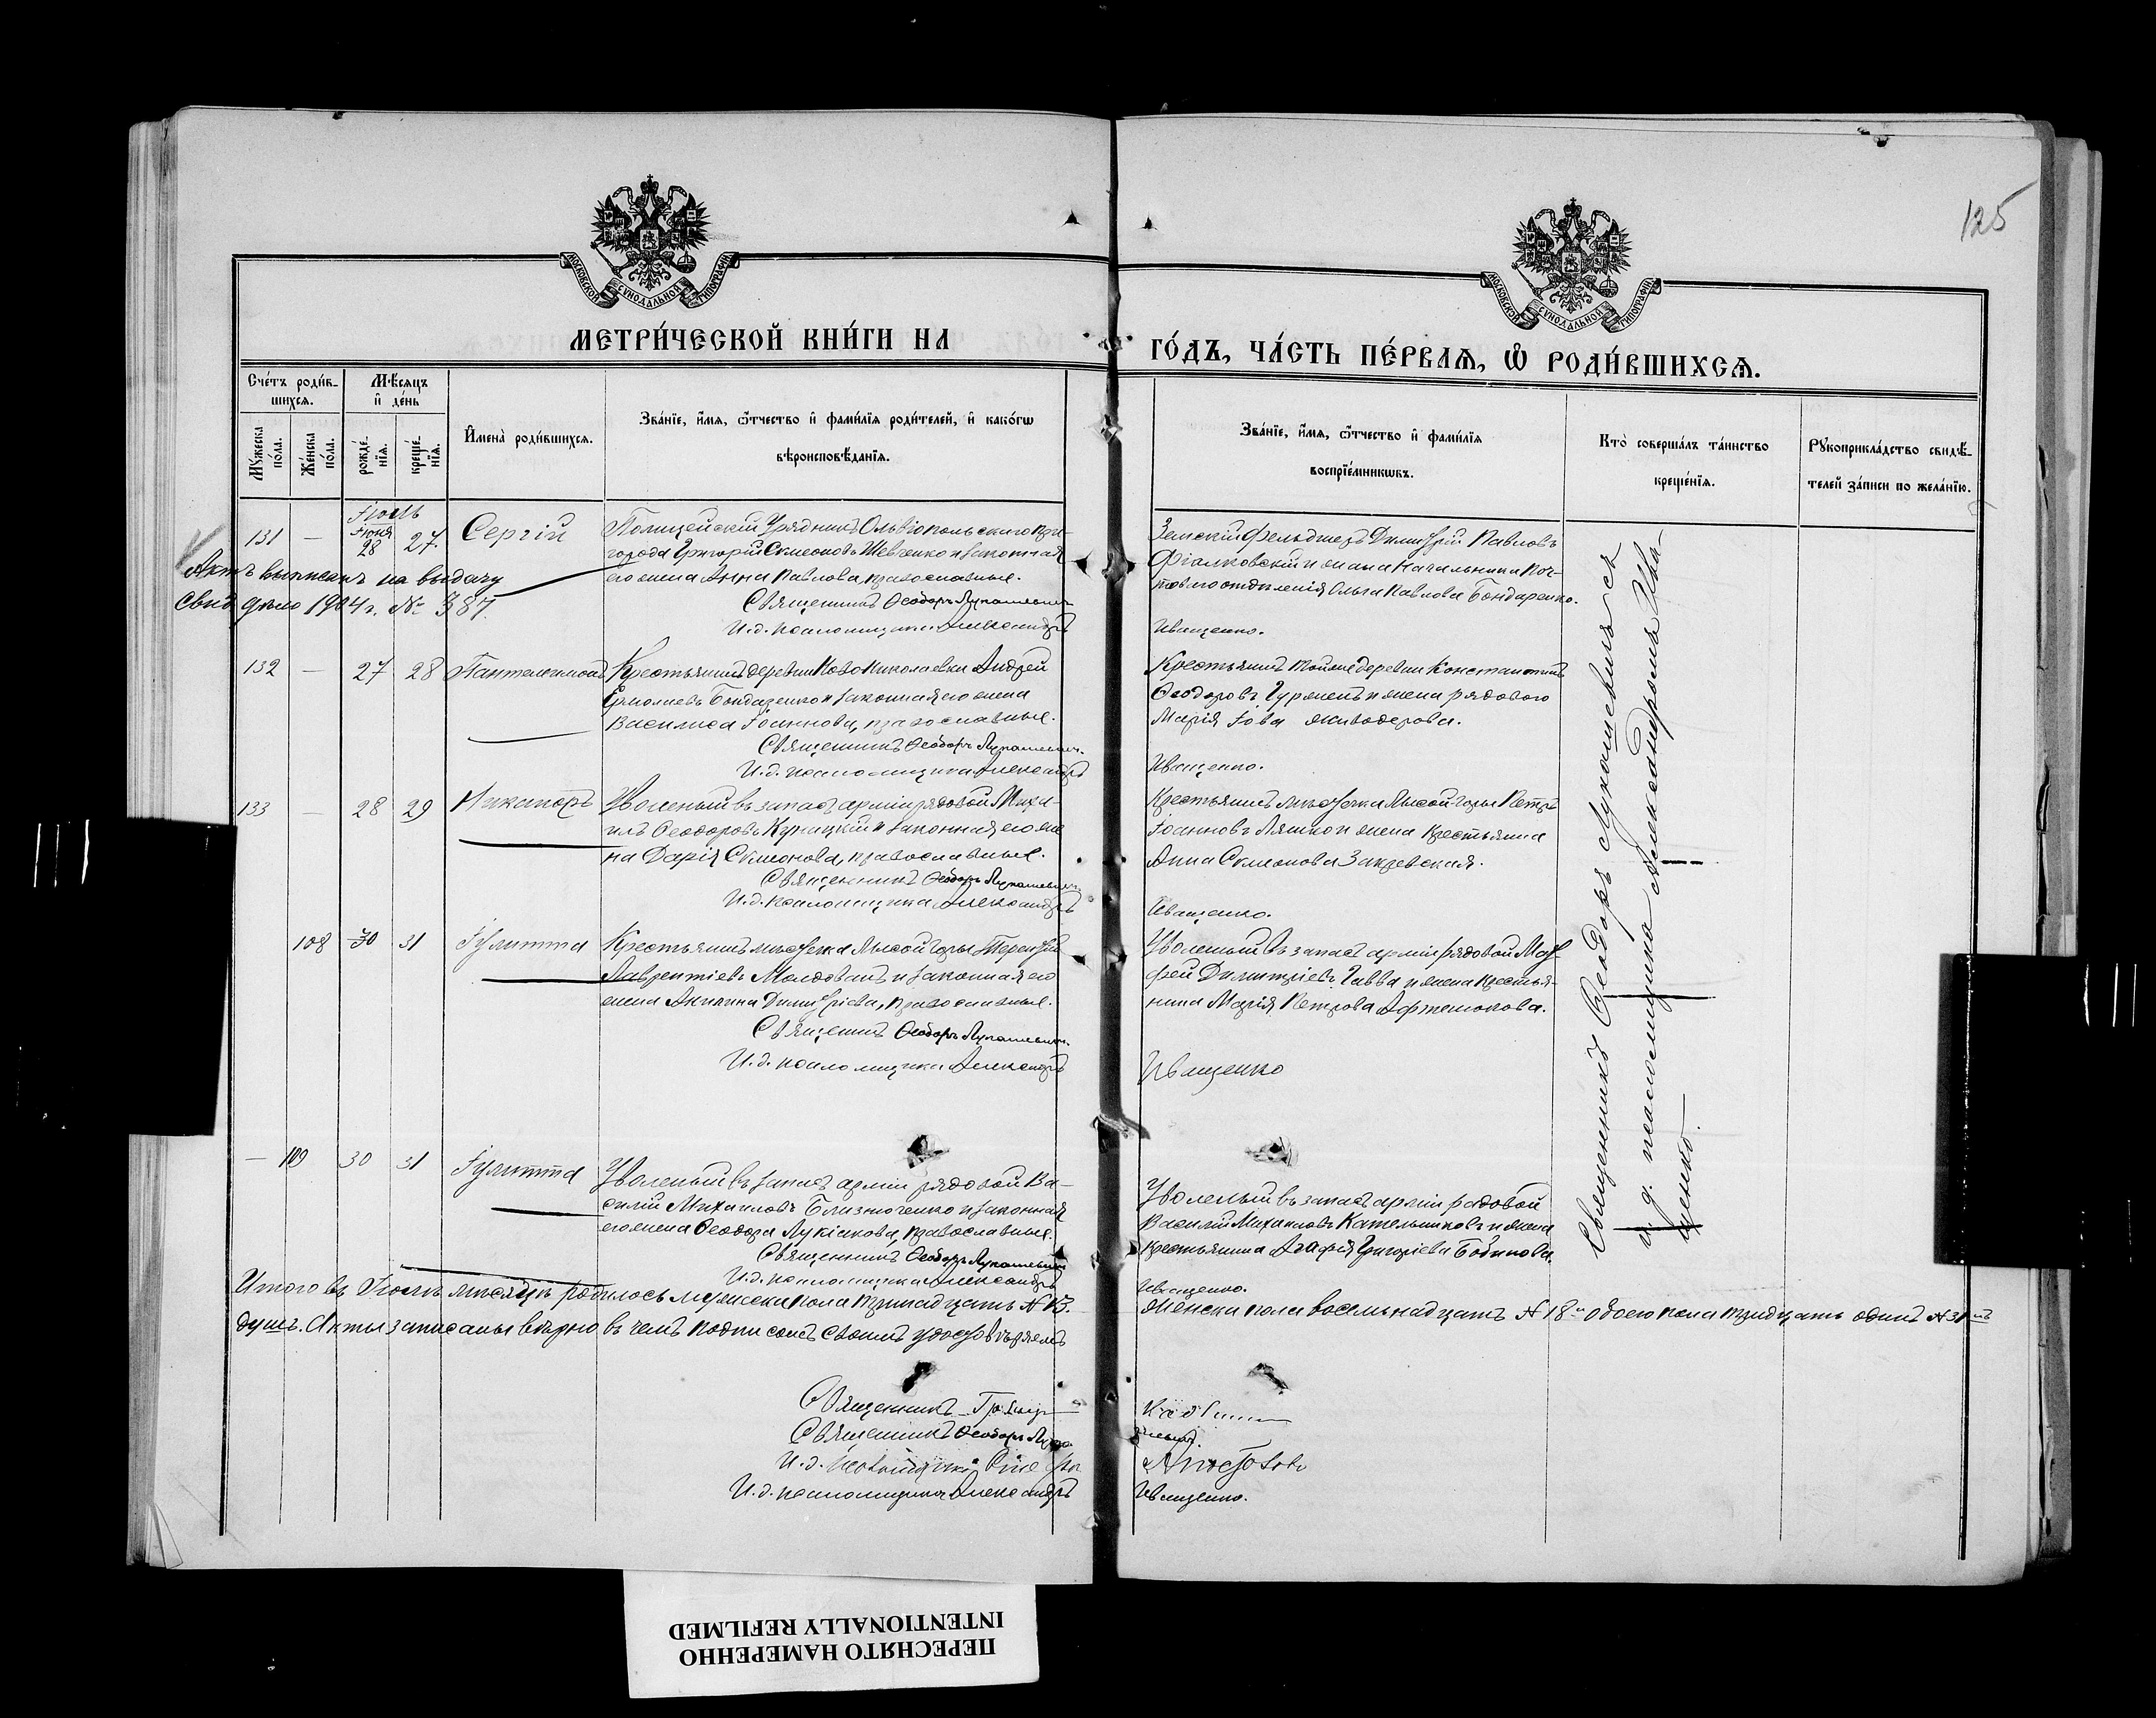 125
МОСКОВСКОЙ СУНОДАЛЬНОЙ ТИПОГРАФІИ
МОСКОВСКОЙ СУНОДАЛЬНОЙ ТИПОГРАФІИ
МЕТРИ́ЧЕСКОЙ КНИ́ГИ НА
ГО́ДЪ, ЧА́СТЬ ПЕ́РВАѦ, Ѡ РОДИ́ВШИХСѦ.
Сче́тъ роди́в-
шихся.
Мѣ́сяцъ
и҆ де́нь
Му́жеска по́ла.
Же́нска по́ла.
рожде́нїя.
креще́нїя.
И҆мена̀ роди́вшихся.
Зва́нїе, и҆́мя, ѻ҆́тчество и҆ фами́лїя роди́телей, и҆ како́гѡ
вѣроисповѣ́данїя.
Зва́нїе, и҆́мя, ѻ҆́тчество и҆ фами́лїя
воспрїе́мникѡвъ.
Кто̀ соверша́лъ та́инство
креще́нїя.
Рꙋкоприкла́дство свидѣ́-
телей за́писи по жела́нїю.
131 — Іюль Іюня 28 27. Сергій
Полицейскій Урядникъ Ольвіопольскаго при-
города Григорій Симеоновъ Шевченко и законная
его жена Анна Павлова, православные.
Священникъ Ѳеодоръ Лукашевичъ
И. д. псаломщика Александръ
Иващенко.
Земскій фельдшеръ Димитрій Павловъ
Фіалковскій и жена Начальника поч-
товаго отдѣленія Ольга Павлова Бондаренко.
Актъ выписанъ на выдачу
свид. 1904 г. № 387.
132 — 27 28 Пантелеимонъ
Крестьянинъ деревни Ново Николаевки Андрей
Ермолаевъ Бондаренко и законная его жена
Василиса Іоаннова, православные.
Священникъ Ѳеодоръ Лукашевичъ.
И. д. псаломщика Александръ
Иващенко.
Крестьянинъ той же деревни Константинъ
Ѳеодоровъ и жена рядового
Марія Іова Живодерова.
133 — 28 29 Никаноръ
Уволеный въ запасъ арміи рядовой Миха-
илъ Ѳеодоровъ Куницкій и законная его же-
на Дарія Симеонова, православные.
Священникъ Ѳеодоръ Лукашевичъ
И. д. псаломщика Александръ
Иващенко.
Крестьянинъ мѣстечка Лысой-Горы Петръ
Іоанновъ Ляшко и жена крестьянина
Анна Симеонова Закревская.
108 30 31 Іулитта
Крестьянинъ мѣстечка Лысой Горы Терентій
Лаврентіевъ Молдованъ и законная его
жена Акилина Димитріева, православные.
Священникъ Ѳеодоръ Лукашевичъ.
И. д. псаломщика Александръ
Иващенко
Уволеный въ запасъ арміи рядовой Мат-
фей Димитріевъ Гавва и жена крестья-
нина Марія Петрова Афтемокова.
— 109 30 31 Іулитта
Уволеный въ запасъ арміи рядовой Ва-
силій Михаиловъ Близнюченко и законная
его жена Ѳеодора Лукіанова, православные.
Священникъ Ѳеодоръ Лукашевичъ
И. д. псаломщика Александръ
Иващенко.
Уволеный въ запасъ арміи рядовой
Василій Михаиловъ Кательниковъ и жена
крестьянина Агафія Григоріева Бобикова.
Священникъ Ѳеодоръ Лукашевичъ съ
и. д. псаломщика Александромъ Ива-
щенко.
Итого въ Іюлѣ мѣсяцѣ родилось мужеска пола тринадцать № 13.
женска пола восемьнадцать № 18 и обоего пола тридцать одинъ № 31
душъ. Акты записаны вѣрно въ чемъ подписомъ своимъ удостовѣряемъ
Священникъ
Священникъ Ѳеодоръ Лукашевичъ.
И. д. псаломщика Апостоловъ
И. д. псаломщика Александръ Иващенко.
ПЕРЕСНЯТО НАМЕРЕННО
INTENTIONALLY REFILMED